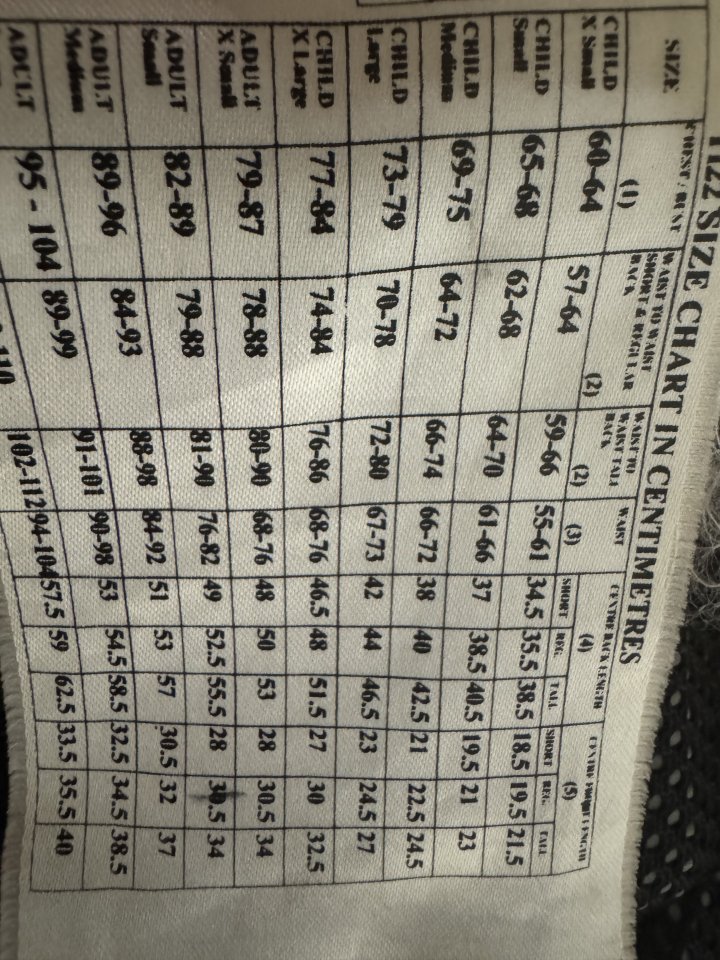 SIZE CHART IN CENTIMETRES
SIZE CHEST / BUST (1) WAIST TO WAIST SHORT & REGULAR BACK (2) WAIST TO WAIST TALL BACK (2) WAIST (3) CENTRE BACK LENGTH (4) CENTRE FRONT LENGTH (5)
SHORT REG. TALL SHORT REG. TALL
CHILD X Small 60-64 57-64 59-66 55-61 34.5 35.5 38.5 18.5 19.5 21.5
CHILD Small 65-68 62-68 64-70 61-66 37 38.5 40.5 19.5 21 23
CHILD Medium 69-75 64-72 66-74 66-72 38 40 42.5 21 22.5 24.5
CHILD Large 73-79 70-78 72-80 67-73 42 44 46.5 23 24.5 27
CHILD X Large 77-84 74-84 76-86 68-76 46.5 48 51.5 27 30 32.5
ADULT X Small 79-87 78-88 80-90 68-76 48 50 53 28 30.5 34
ADULT Small 82-89 79-88 81-90 76-82 49 52.5 55.5 28 30.5 34
ADULT Medium 89-96 84-93 88-98 84-92 51 53 57 30.5 32 37
ADULT 95 - 104 89-99 91-101 90-98 53 54.5 58.5 32.5 34.5 38.5
102-112 94-104 57.5 59 62.5 33.5 35.5 40